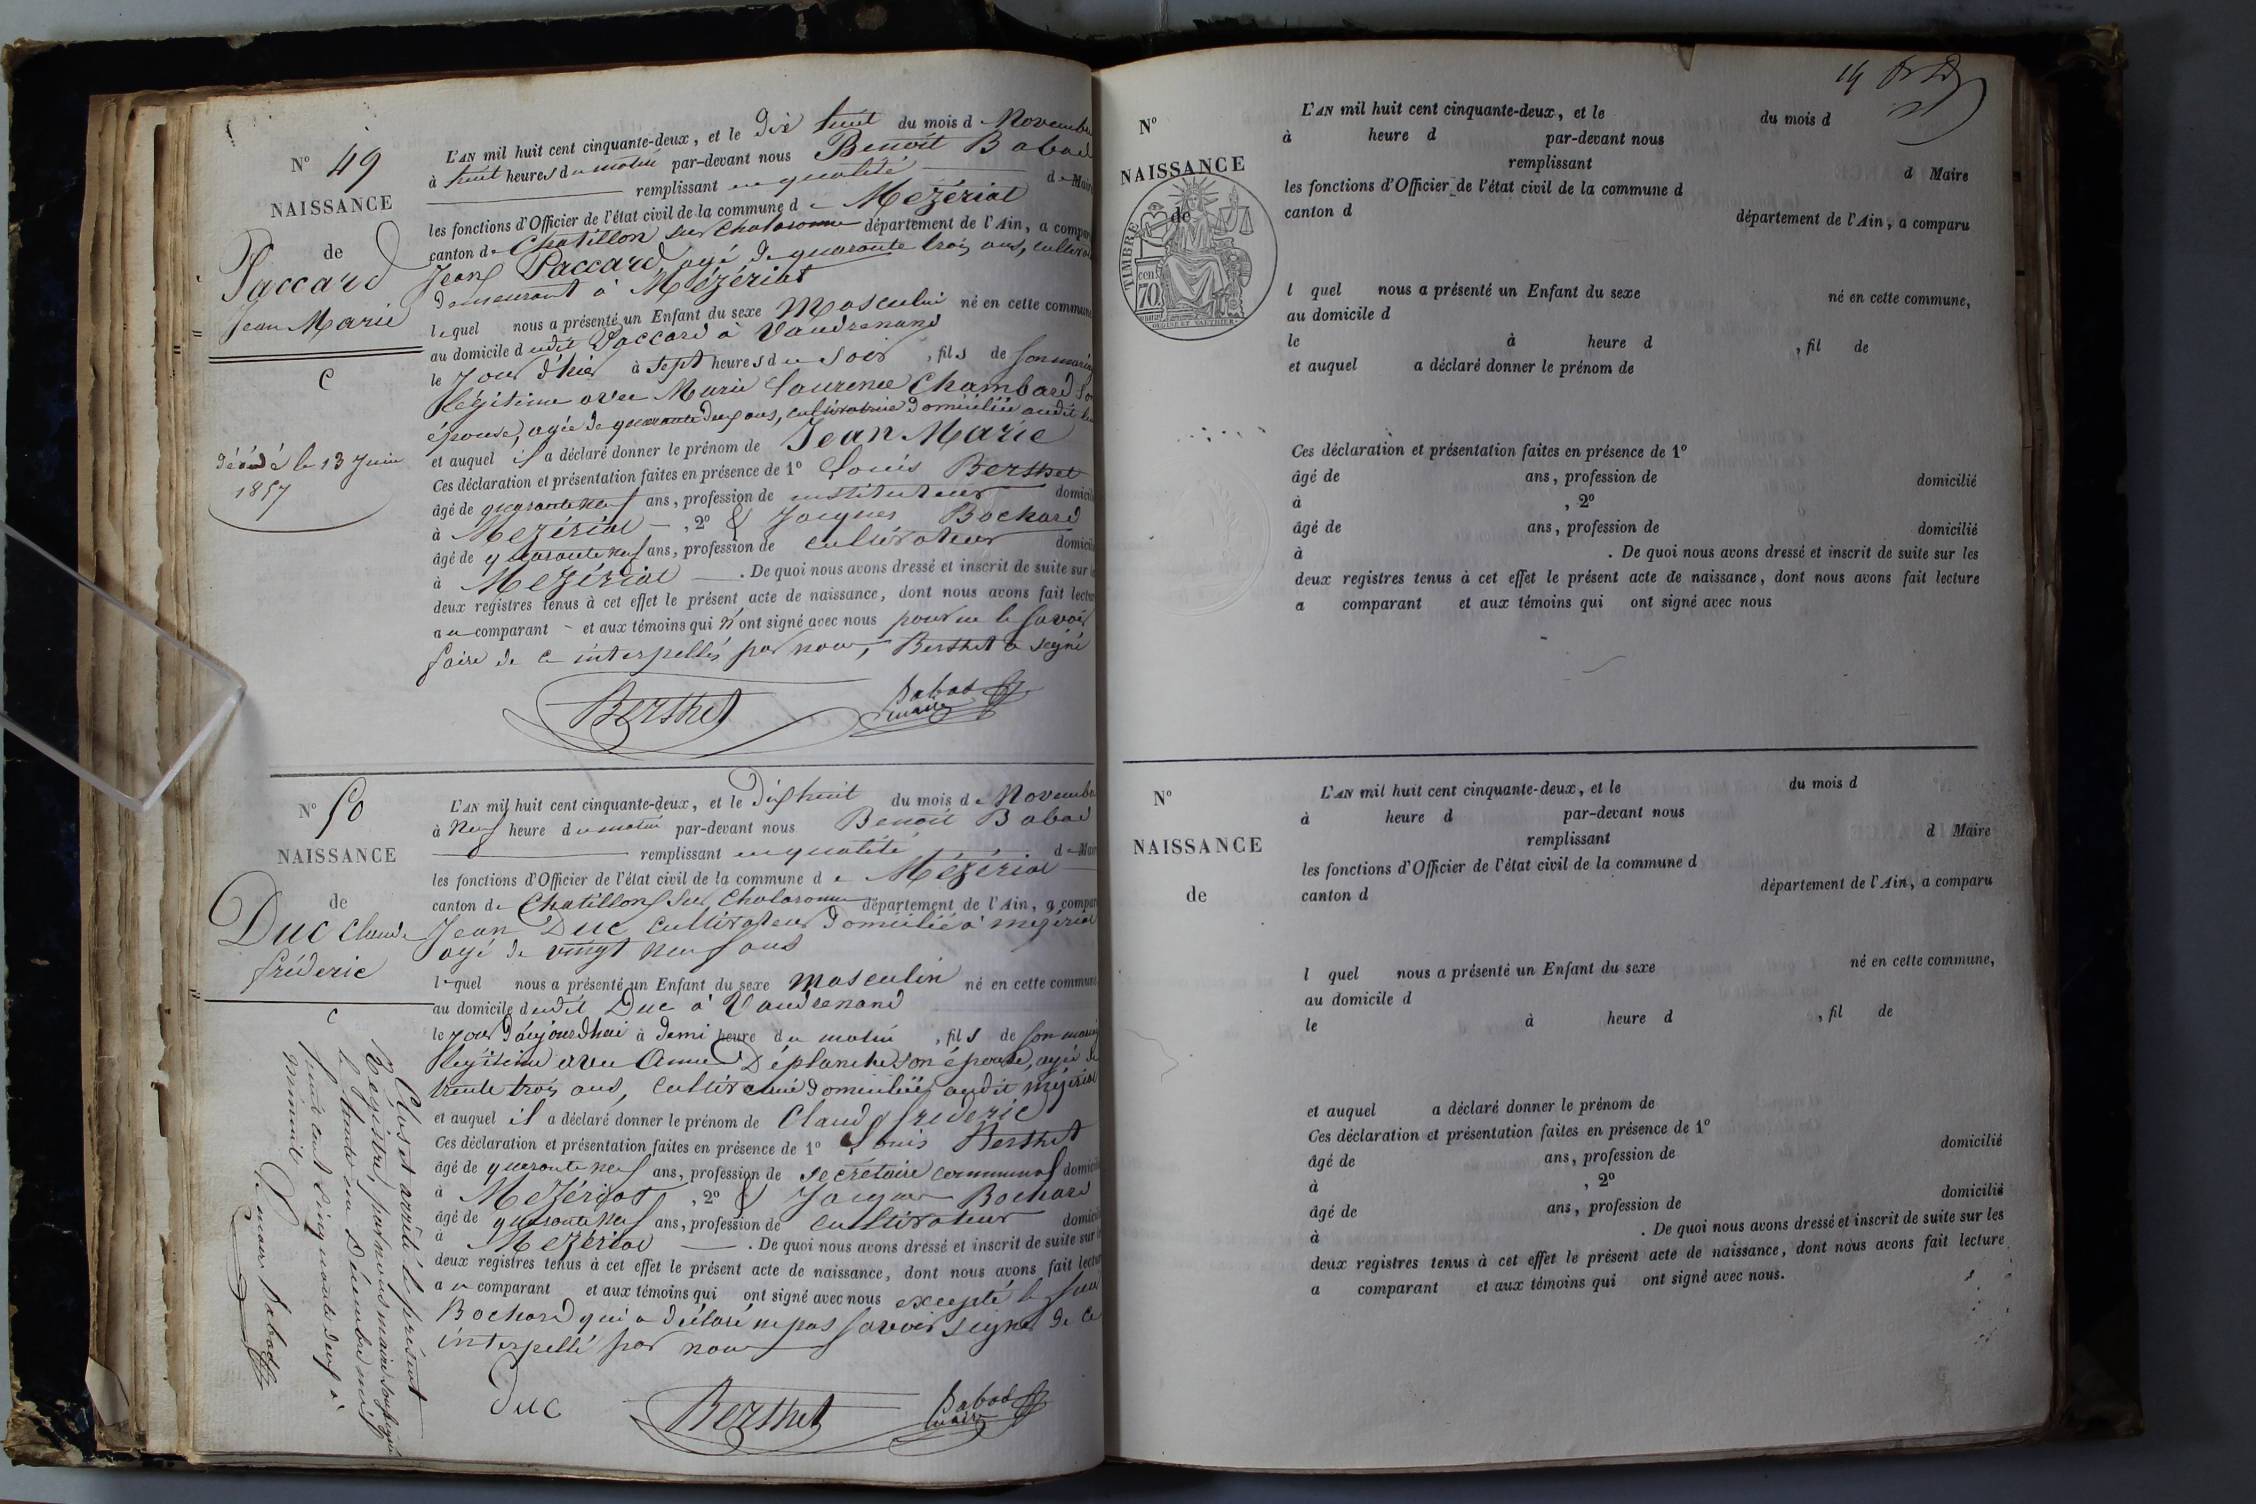 N° 49
NAISSANCE
de
Paccard
Jean Marie
C
décédé le 13 Juin
1857
L'AN mil huit cent cinquante-deux, et le Dix huit du mois d e Novembre
à huit heures du matin par-devant nous Benoit Babad
remplissant en qualité de Maire
les fonctions d'Officier de l'état civil de la commune d e Mézériat
canton de Chatillon sur Chalaronne département de l'Ain, a comparu
Jean Paccard, agé de quarante trois ans, cultivateur
demeurant à Mézériat
lequel nous a présenté un Enfant du sexe Masculin né en cette commune
au domicile dudit Paccard à Vaudrenand
le Jour d'hier à Sept heures du Soir, fils de son mariage
légitime avec Marie Laurence Chambard son
épouse, agée de quarante deux ans, cultivatrice domiciliée audit lieu
et auquel il a déclaré donner le prénom de Jean Marie
Ces déclaration et présentation faites en présence de 1° Louis Berthet
âgé de quarante neuf ans, profession de instituteur domicilié
à Mézériat, 2° & Jacques Bochard
âgé de quarante neuf ans, profession de cultivateur domicilié
à Mézériat. De quoi nous avons dressé et inscrit de suite sur les
deux registres tenus à cet effet le présent acte de naissance, dont nous avons fait lecture
au comparant et aux témoins qui n'ont signé avec nous pour ne le savoir
faire de ce interpellés par nous, Berthet a signé
Berthet Babad
maire
N° 50
NAISSANCE
de
Duc Claude
fréderic
C
L'AN mil huit cent cinquante-deux, et le Dix huit du mois de Novembre
à Neuf heure du matin par-devant nous Benoit Babad
remplissant en qualité de Maire
les fonctions d'Officier de l'état civil de la commune d e Mézériat
canton de Chatillon sur Chalaronne département de l'Ain, a comparu
Jean Duc cultivateur domicilié à mézériat
agé de vingt neuf ans
lequel nous a présenté un Enfant du sexe masculin né en cette commune
au domicile dudit Duc à Vaudrenand
le jour d'aujourdhui à demi heure du matin, fils de son mariage
légitime avec Anne Déplanche son épouse, agée de
trente trois ans, cultivatrice domiciliée audit mézériat
et auquel il a déclaré donner le prénom de Claude frederic
Ces déclaration et présentation faites en présence de 1° Louis Berthet
âgé de quarante neuf ans, profession de secrétaire communal domicilié
à Mézériat, 2° & Jacques Bochard
âgé de quarante neuf ans, profession de cultivateur domicilié
à Mézériat. De quoi nous avons dressé et inscrit de suite sur les
deux registres tenus à cet effet le présent acte de naissance, dont nous avons fait lecture
au comparant et aux témoins qui ont signé avec nous excepté le sieur
Bochard qui a déclaré ne pas savoir signer de ce
interpellé par nous
Duc Berthet Babad
maire
Clos et arrêté le présent
Régistre, par nous maire soussigné
le trente un Décembre mil
huit cent cinquante deux à
minuit
Le maire Babad
14
N°
NAISSANCE
de
TIMBRE
cent.
70
L'AN mil huit cent cinquante-deux, et le du mois d
à heure d par-devant nous
remplissant d Maire
les fonctions d'Officier de l'état civil de la commune d
canton d département de l'Ain, a comparu
l quel nous a présenté un Enfant du sexe né en cette commune,
au domicile d
le à heure d , fil de
et auquel a déclaré donner le prénom de
Ces déclaration et présentation faites en présence de 1°
âgé de ans, profession de domicilié
à , 2°
âgé de ans, profession de domicilié
à . De quoi nous avons dressé et inscrit de suite sur les
deux registres tenus à cet effet le présent acte de naissance, dont nous avons fait lecture
a comparant et aux témoins qui ont signé avec nous
N°
NAISSANCE
de
L'AN mil huit cent cinquante-deux, et le du mois d
à heure d par-devant nous
remplissant d Maire
les fonctions d'Officier de l'état civil de la commune d
canton d département de l'Ain, a comparu
l quel nous a présenté un Enfant du sexe né en cette commune,
au domicile d
le à heure d , fil de
et auquel a déclaré donner le prénom de
Ces déclaration et présentation faites en présence de 1°
âgé de ans, profession de domicilié
à , 2°
âgé de ans, profession de domicilié
à . De quoi nous avons dressé et inscrit de suite sur les
deux registres tenus à cet effet le présent acte de naissance, dont nous avons fait lecture
a comparant et aux témoins qui ont signé avec nous.